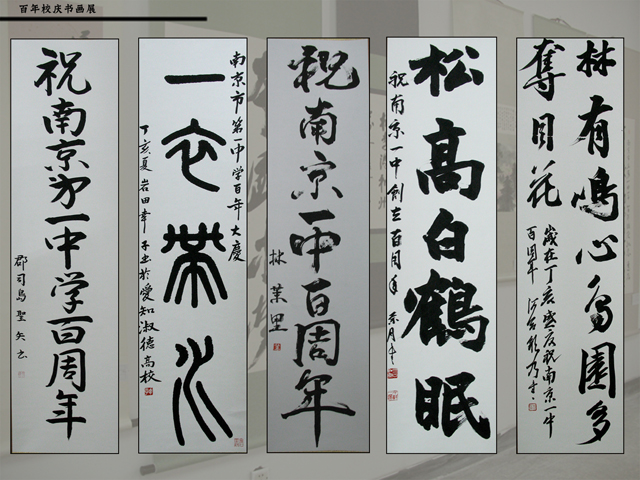 百年校庆书画展
祝南京第一中学百周年
郡司鳥聖矢書
南京市第一中学百年大慶
一衣帯水
丁亥夏岩田幸子書於愛知淑徳高校
祝南京一中百周年
林葉里
松高白鶴眠
祝南京一中創立百周年
林有鳴心鳥園多
奪目花
歲在丁亥盛夏祝南京一中
百周年